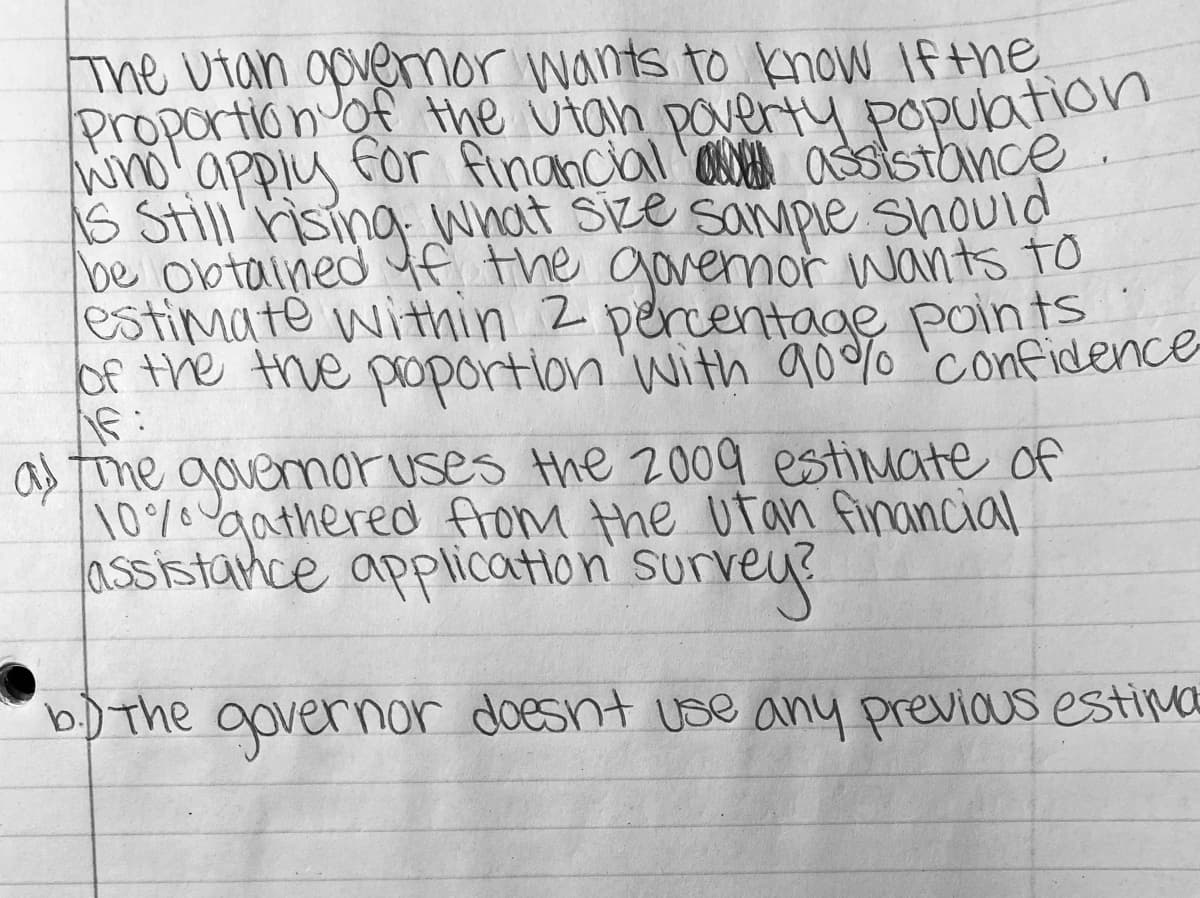 The Utah governor wants to know if the
proportion of the Utah poverty population
who apply for financial assistance.
is still rising. What size sample should
be obtained if the governor wants to
estimate within 2 percentage points
of the true proportion with 90% confidence
if:
a.) The governor uses the 2009 estimate of
10% gathered from the Utah financial
assistance application survey?
b.) The governor doesnt use any previous estima